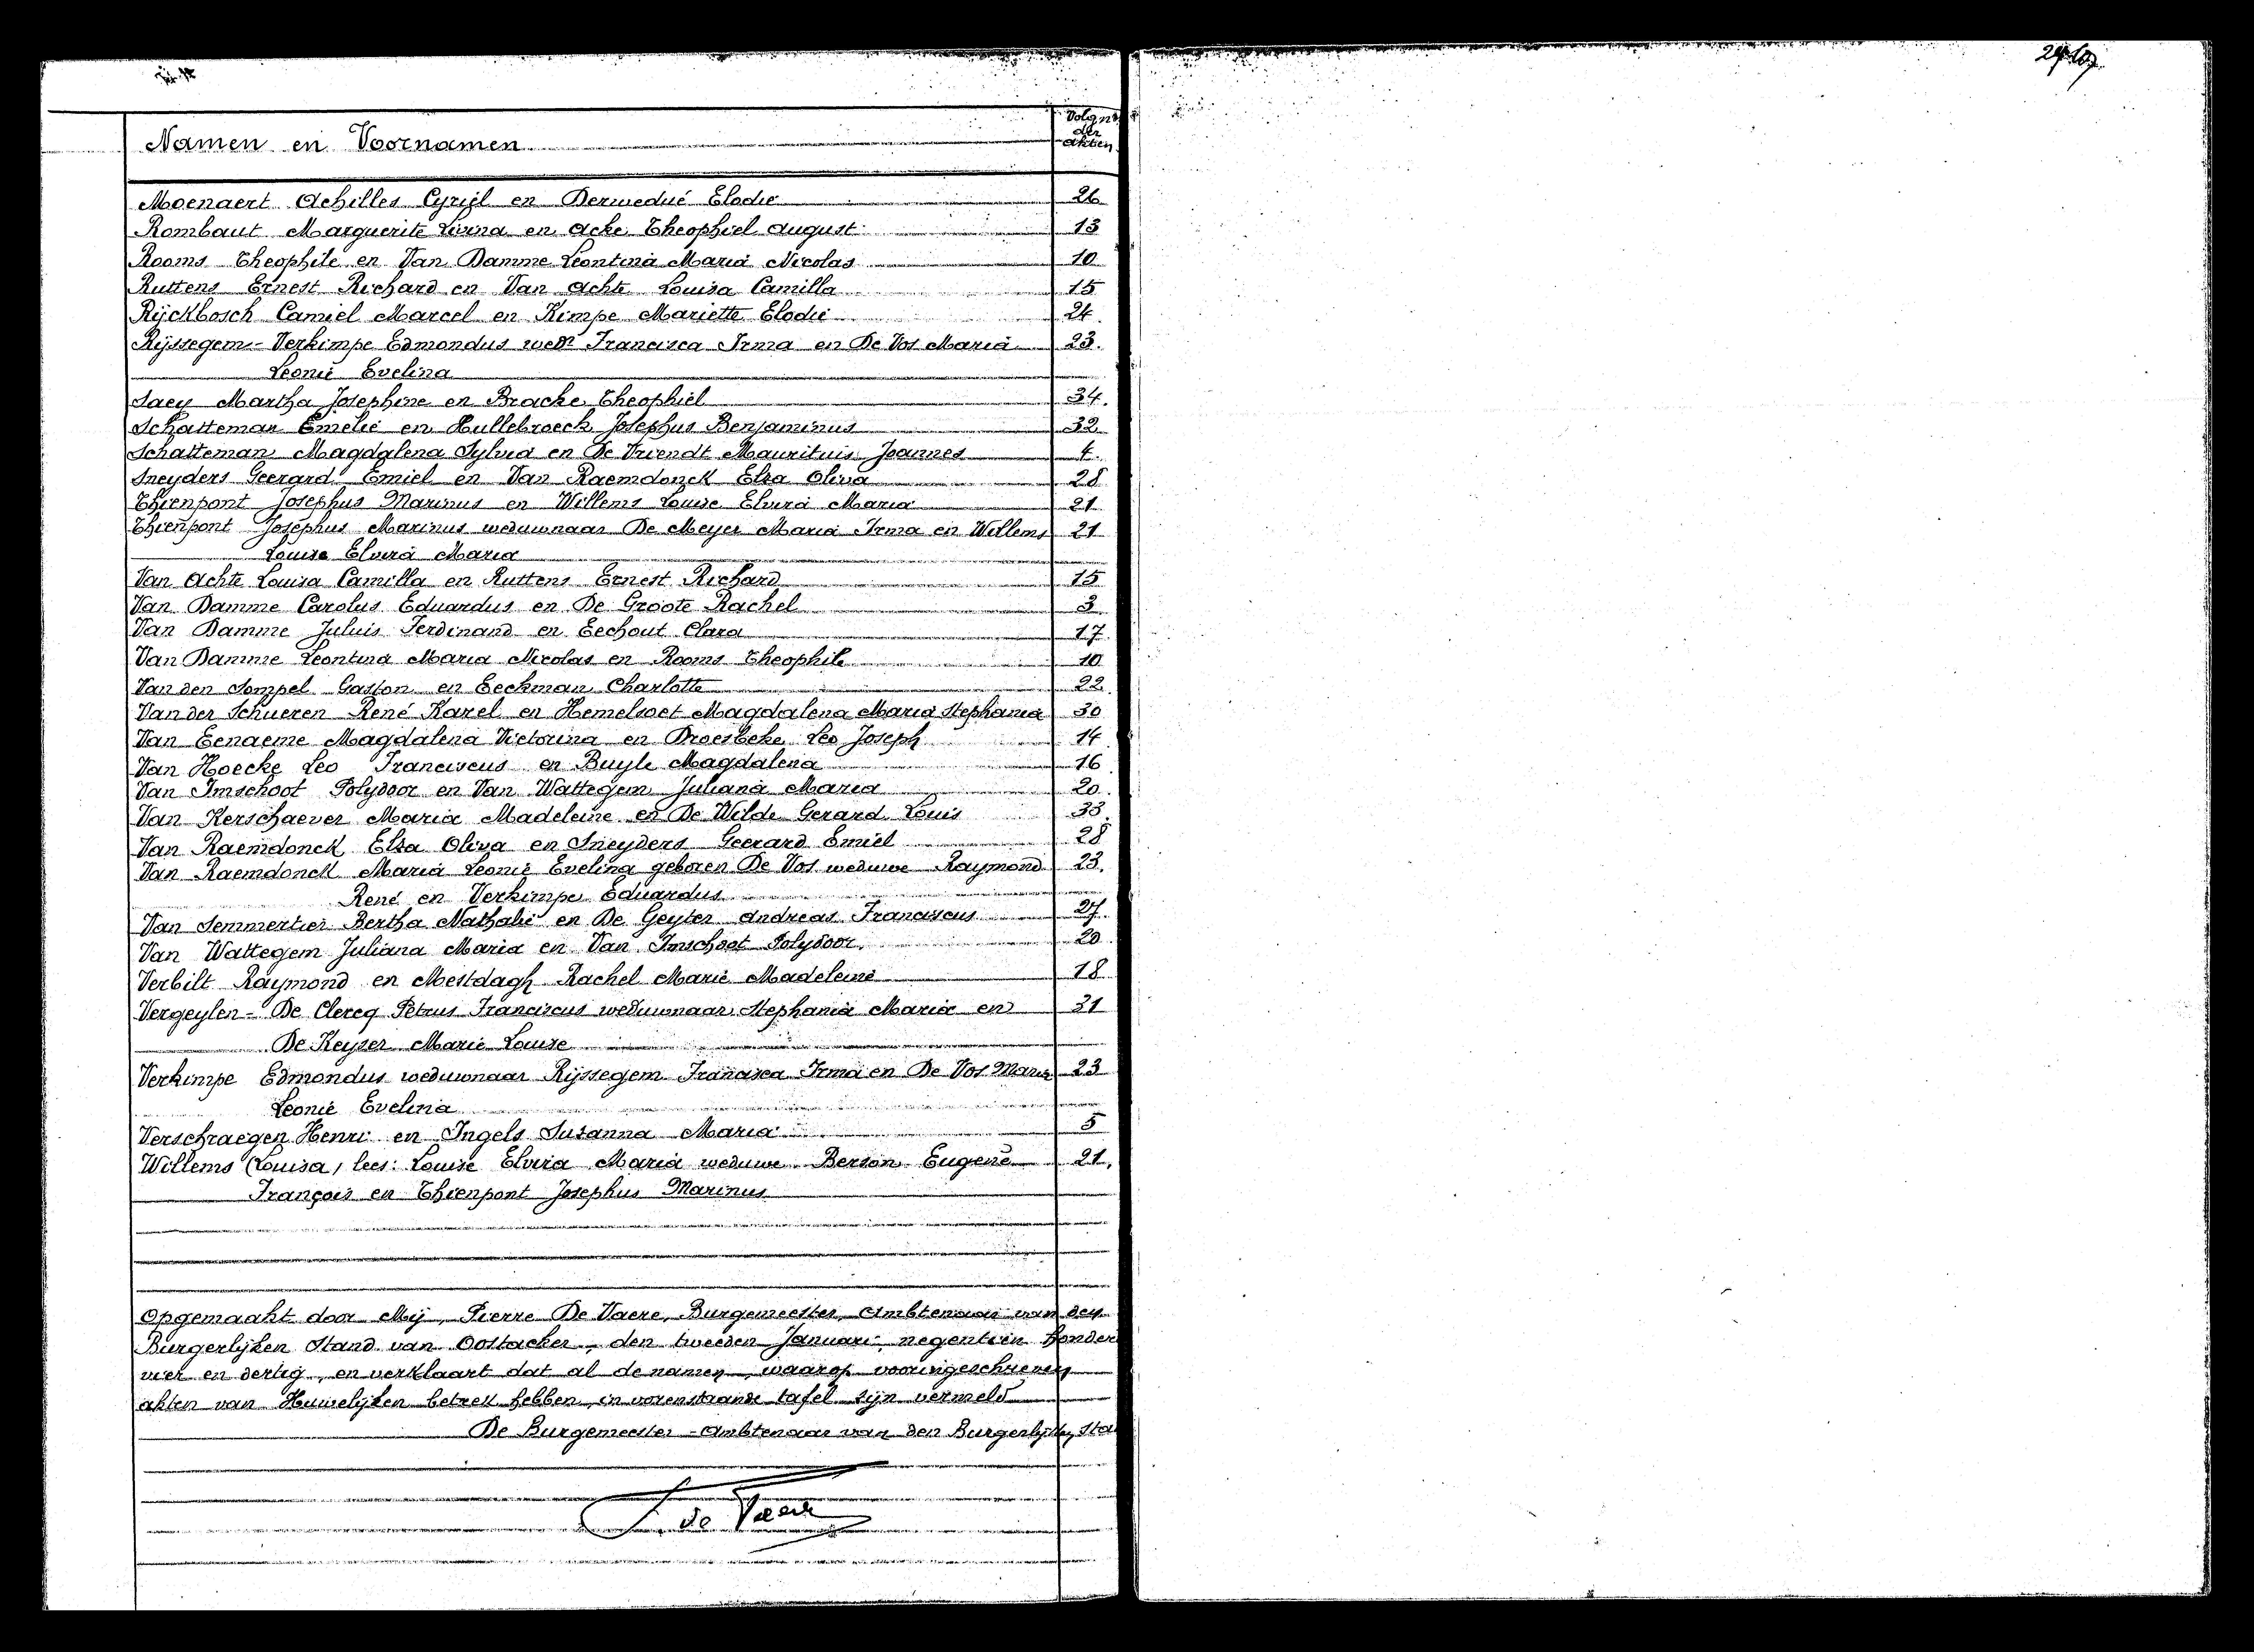 Namen en Voornamen
Volgnr der akten
Moenaert Achilles Cyriel en Derwedué Elodie 26
Rombaut Marguerite Livina en Acke Theophiel August 13
Rooms Theophile en Van Damme Leontina Maria Nicolas 10
Ruttens Ernest Richard en Van Achte Louisa Camilla 15
Rijckbosch Camiel Marcel en Kimpe Mariette Elodie 24.
Rijssegem - Verkimpe Edmondus wedr Francisca Irma en De Vos Maria 23.
Leonie Evelina
Saey Martha Josephine en Bracke Theophiel 34.
Schatteman Emelie en Hullebroeck Josephus Benjaminus 32
Schatteman Magdalena Sylvia en De Vriendt Mauritius Joannes 4.
Sneyders Geerard Emiel en Van Raemdonck Elza Oliva 28
Thienpont Josephus Marinus en Willems Louise Elvira Maria 21
Thienpont Josephus Marinus weduwnaar De Meyer Maria Irma en Willems 21
Louise Elvira Maria
Van Achte Louisa Camilla en Ruttens Ernest Richard 15
Van Damme Carolus Eduardus en De Groote Rachel 3
Van Damme Juluis Ferdinand en Eechout Clara 17
Van Damme Leontina Maria Nicolas en Rooms Theophile 10
Van den Sompel Gaston en Eeckman Charlotte 22
Van der Schueren René Karel en Hemelsoet Magdalena Maria Stephania 30
Van Eenaeme Magdalena Victorina en Droesbeke Leo Joseph 14
Van Hoecke Leo Franciscus en Buyle Magdalena 16
Van Imschoot Polydoor en Van Wattegem Juliana Maria 20
Van Kerschaever Maria Madeleine en De Wilde Gerard Louis 33.
Van Raemdonck Elza Oliva en Sneyders Geerard Emiel 28
Van Raemdonck Maria Leonie Evelina geboren De Vos weduwe Raymond 23.
René en Verkimpe Eduardus
Van Semmertier Bertha Nathalie en De Geyter Andreas Franciscus 27.
Van Wattegem Juliana Maria en Van Imschoot Polydoor. 20
Verbilt Raymond en Mestdagh Rachel Marie Madeleine 18
Vergeylen - De Clercq Petrus Franciscus weduwnaar Stephania Maria en 31
De Keyser Marie Louise
Verkimpe Edmondus weduwnaar Rijssegem Francisca Irma en De Vos Maria 23
Leonie Evelina
Verschraegen Henri en Ingels Susanna Maria 5
Willems (Louisa, lees: Louise Elvira Maria weduwe Berson Eugene 21.
François en Thienpont Josephus Marinus
Opgemaakt door Mij, Pierre De Vaere, Burgemeester, Ambtenaar van den
Burgerlijken Stand van Oostacker, den tweeden Januari, negentien honder
vier en dertig, en verklaart dat al de namen, waarop vooringeschreven
akten van Huwelijken betrek hebben, in vorenstaande tafel zijn vermeld
De Burgemeester - Ambtenaar van den Burgerlijken Sta
de Vaere